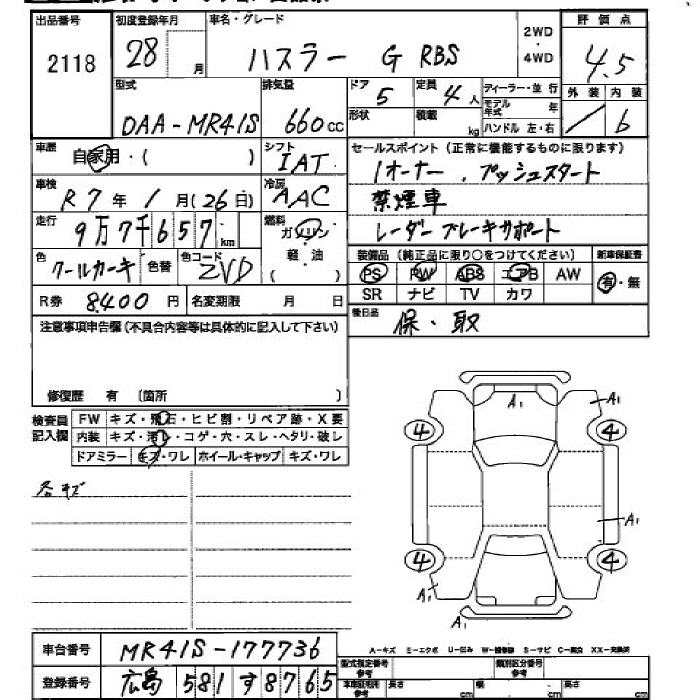 出品番号 初度登録年月 車名・グレード 2WD・4WD 評価点
2118 28 月 ハスラー G RBS 4.5
型式 排気量 ドア 定員 ディーラー・並行 外装 内装
DAA-MR41S 660cc 5 4人 モデル年式 年 / 6
形状 積載 kg ハンドル 左・右
車歴 自家用・( ) シフト IAT セールスポイント(正常に機能するものに限ります)
1オーナー . プッシュスタート
車検 R7年 1月(26日) 冷房 AAC 禁煙車
走行 9万7千657km 燃料 ガソリン レーダーブレーキサポート
軽・油 ( )
色 クールカーキ 色替 色コード ZVD 装備品(純正品に限り○をつけてください) 新車保証書
PS PW ABS エアB AW 有・無
SR ナビ TV カワ
R券 8,400円 名変期限 月 日 後日品 保・取
注意事項申告欄(不具合内容等は具体的に記入して下さい)
修復歴 有 〔箇所 〕
検査員記入欄 FW キズ・飛石・ヒビ割・リペア跡・X要
内装 キズ・汚レ・コゲ・穴・スレ・ヘタリ・破レ
ドアミラー キズ・ワレ ホイール・キャップ キズ・ワレ
各キズ
A1 A1
4 4
A1
4 4
A1 A1
車台番号 MR41S-177736
登録番号 広島 581 す 8765
A-キズ E-エクボ U-凹み W-補修跡 S-サビ C-腐蝕 XX-交換済
型式指定番号 参考 類別区分番号 参考
車検証利用 参考 長さ cm 幅 cm 高さ cm